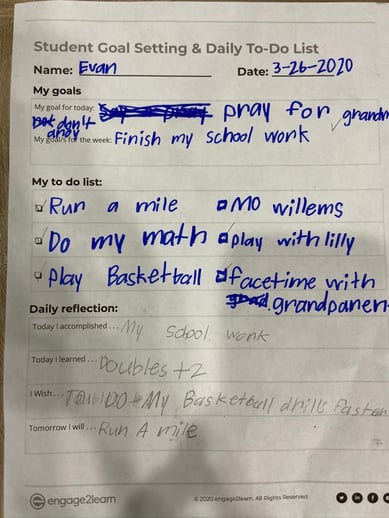 Student Goal Setting & Daily To-Do List
Name: Evan Date: 3-26-2020
My goals
My goal for today: pray for grandm
don't
My goal/s for the week: Finish my school work
My to do list:
Run a mile Mo willems
Do my math play with lilly
Play Basketball facetime with
grandparent
Daily reflection:
Today I accomplished... My school work
Today I learned... Doubles +2
I Wish... DO My Basketball drills faster
Tomorrow I will... Run A mile
engage2learn
© 2020 engage2learn. All Rights Reserved.